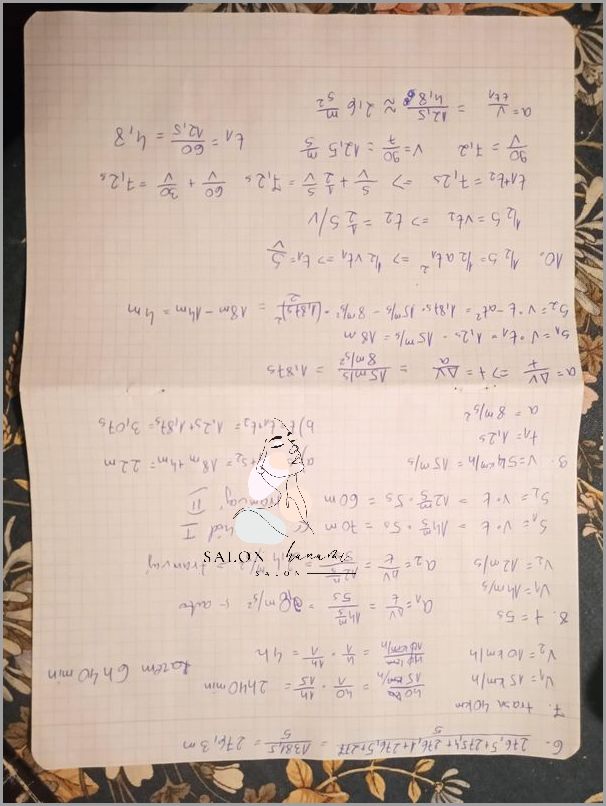 6. (276,5+275,4+276,1+276,5+277)/5 = 1381,5/5 = 276,3 m
7. trasa 40km
V₁ = 15 km/h = 40/15 · 1h/1 = 2h40min
V₂ 10 km/h = 4/1 · 1h/1 = 4h Razem 6h 40 min
8. t = 5s
V₁ = 14 m/s a₁ = ΔV/t = m/s² ← auto
V₂ = 12 m/s a₂ = ΔV/t = ← tramwaj
S₁ = V · t = 14 m/s · 5s = 70m I
S₂ = V · t = 12 m/s · 5s = 60m II
9. V=54km/h = 15m/s a) + s₂ = 18m + 4m = 22m
t₁ = 1,2s
a = 8m/s² b) t₁+t₂ = 1,2s+1,87s = 3,07s
a = ΔV/t => t = ΔV/a = 15m/s / 8m/s² = 1,87s
S₁ = V · t₁ = 1,2s · 15m/s = 18m
S₂ = V · t - at²/2 = 1,87s · 15m/s - 8m/s² · (1,87s)²/2 = 18m - 14m = 4m
10. 1/2 S = 1/2 at₁² => 1/2 Vt₁ => t₁ = S/V
1/2 S = Vt₂ => t₂ = 1/2 S/V
t₁+t₂ = 7,2s => S/V + 1/2 S/V = 7,2s 60/V + 30/V = 7,2s
90/V = 7,2 V = 90/7 = 12,5 m/s t₁ = 60/12,5 = 4,8
a = V/t₁ = 12,5/4,8 ≈ 2,6 m/s²
SALON
SALON